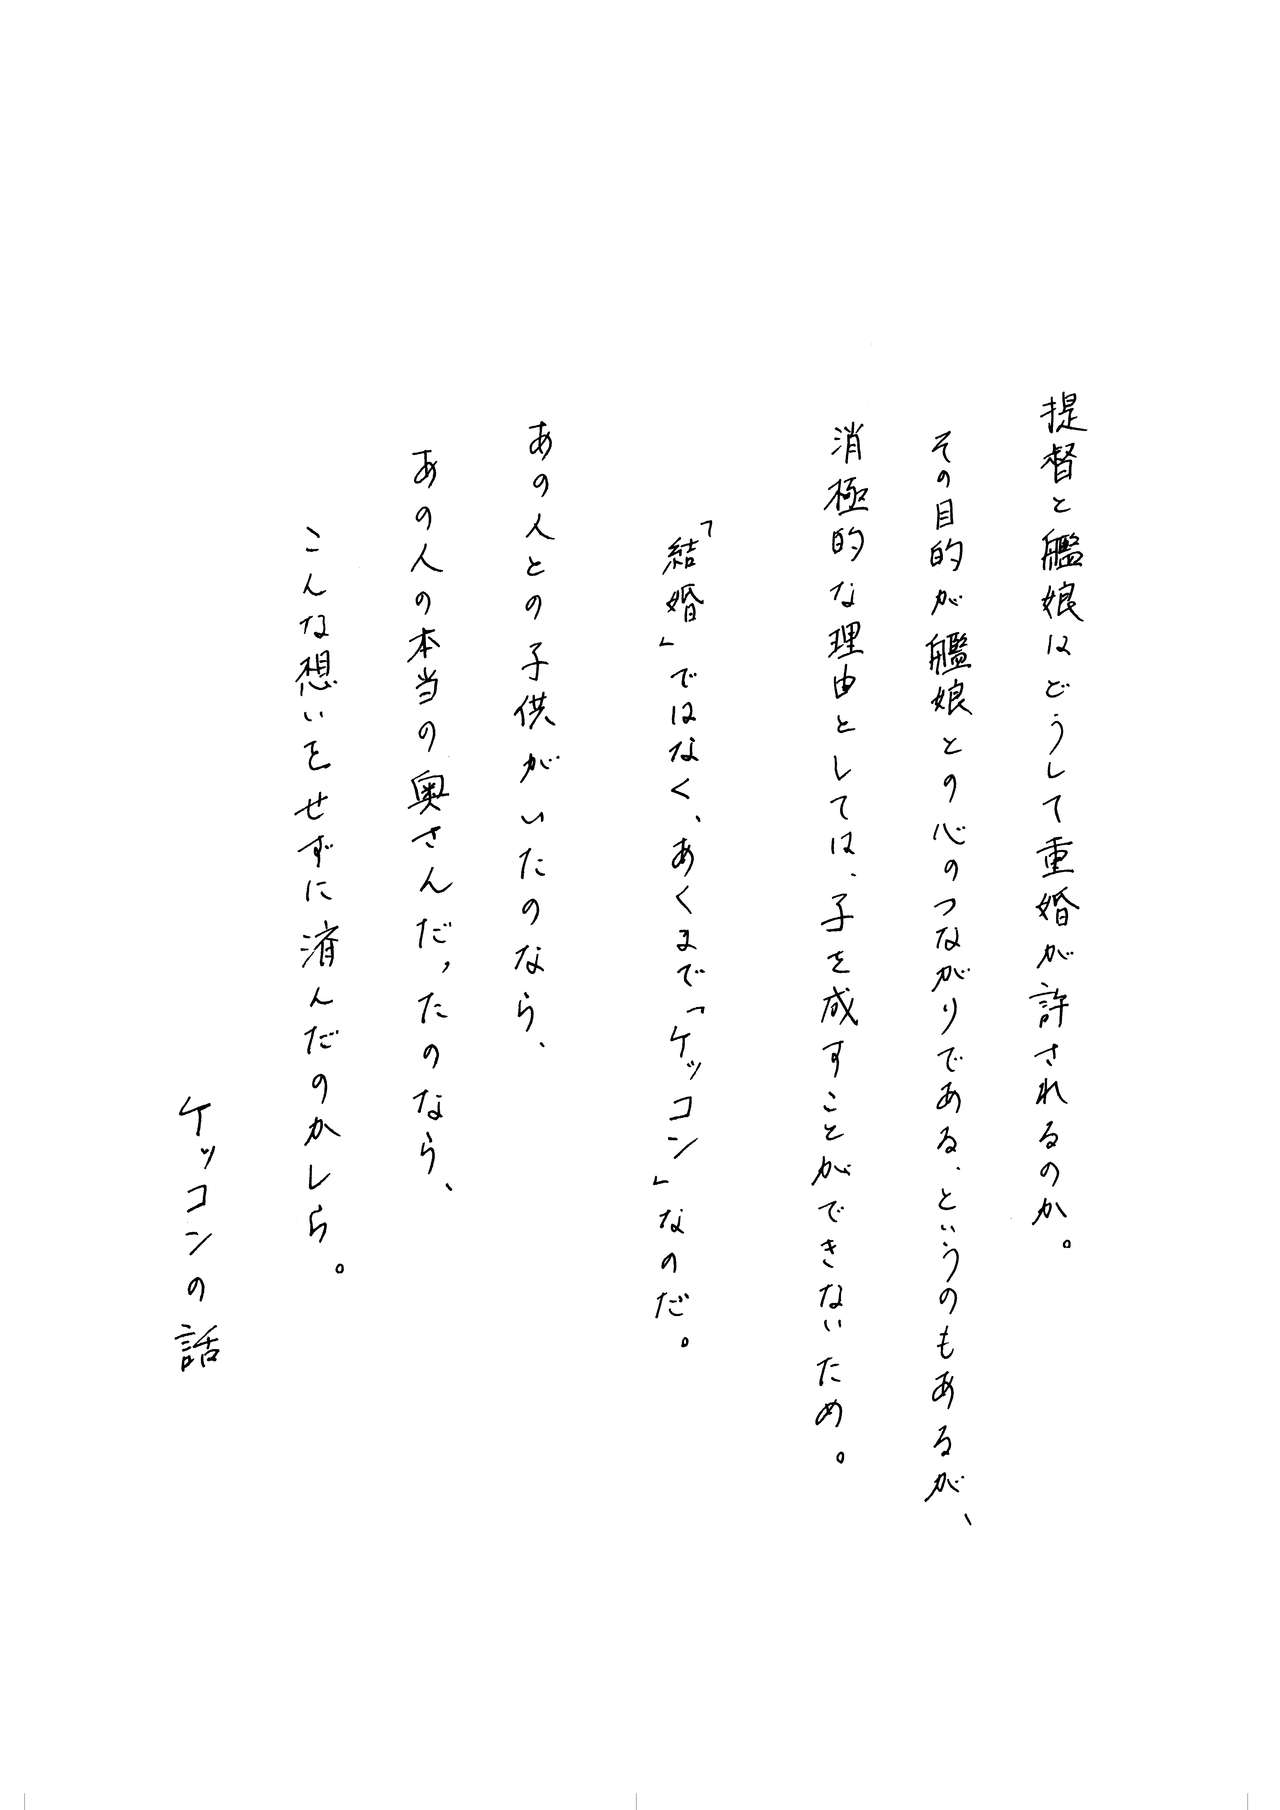 提督と艦娘はどうして重婚が許されるのか。
その目的が艦娘との心のつながりである、というのもあるが、
消極的な理由としては、子を成すことができないため。
「結婚」ではなく、あくまで「ケッコン」なのだ。
あの人との子供がいたのなら、
あの人の本当の奥さんだったのなら、
こんな想いをせずに済んだのかしら。
ケッコンの話